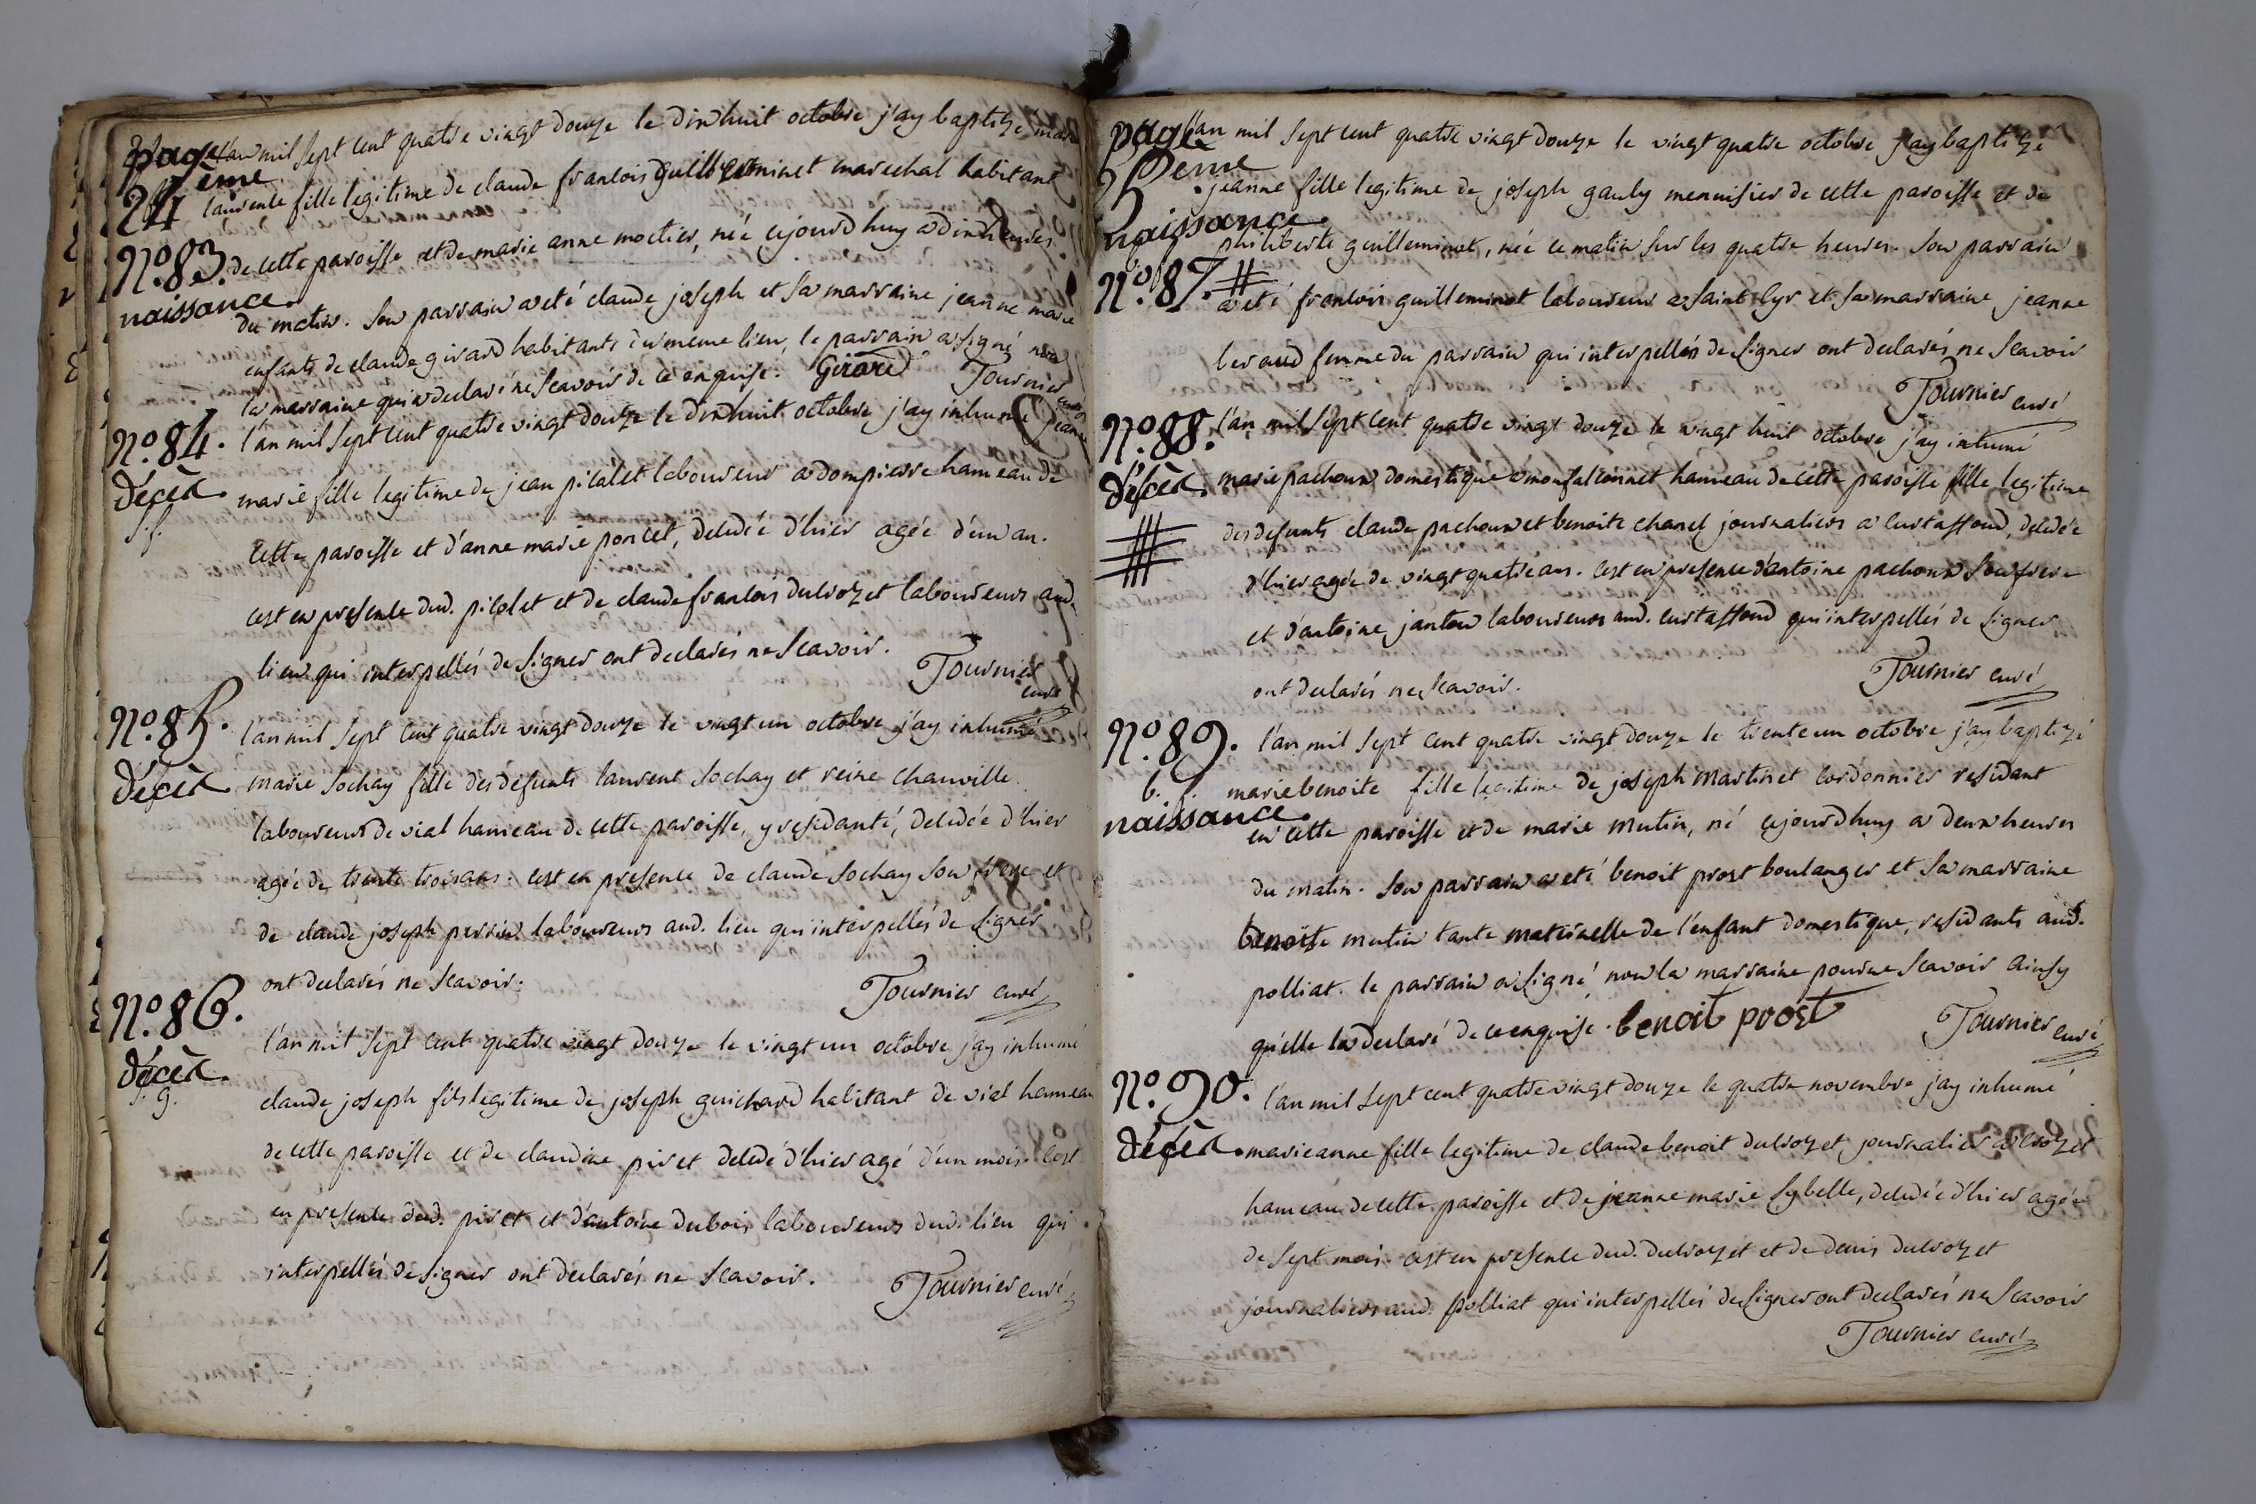 page
24 eme
l'an mil sept cent quatre vingt douze le dixhuit octobre j'ay baptizé marie
laurence fille legitime de claude francois guilleminet marechal habitant
N.o 83.
naissance.
de cette paroisse et de marie anne moctier, née cejourd'huy a dix heures
du matin. son parrain a eté claude joseph et sa marraine jeanne marie
enfants de claude girard habitants du meme lieu, le parrain a signé non
la marraine qui a declaré ne scavoir de ce enquise. Girard Tournier curé
N.o 84.
décèd.
s. f.
l'an mil sept cent quatre vingt douze le dixhuit octobre j'ay inhumé jeanne
marie fille legitime de jean pilolet laboureur a dompierre hameau de
cette paroisse et d'anne marie poncet, decedée d'hier agée d'un an.
c'est en presence dud. pilolet et de claude francois ducrozet laboureurs aud.
lieu qui interpellés de signer ont declarés ne scavoir. Tournier curé
N.o 85.
décèd.
l'an mil sept cent quatre vingt douze le vingt un octobre j'ay inhumé
marie sochay fille des defunts laurent sochay et reine chanville
laboureurs de vial hameau de cette paroisse, y residante, decedée d'hier
agée de trente trois ans. c'est en presence de claude sochay son frere et
de claude joseph perrin laboureurs aud. lieu qui interpellés de signer
ont declarés ne scavoir. Tournier curé
N.o 86.
décèd.
s. g.
l'an mil sept cent quatre vingt douze le vingt un octobre j'ay inhumé
claude joseph fils legitime de joseph guichard habitant de vial hameau
de cette paroisse et de claudine piret decedé d'hier agé d'un mois. c'est
en presence dud. piret et d'antoine dubois laboureurs dud. lieu qui
interpellés de signer ont declarés ne scavoir. Tournier curé
page
25 eme
naissance.
N.o 87. #
l'an mil sept cent quatre vingt douze le vingt quatre octobre j'ay baptizé
jeanne fille legitime de joseph gauly menuisier de cette paroisse et de
philiberte guilleminot, née ce matin sur les quatre heures. son parrain
a eté francois guilleminot laboureur a saint cyr et sa marraine jeanne
beraud femme du parrain qui interpellés de signer ont declarés ne scavoir
Tournier curé
N.o 88.
décèd.
l'an mil sept cent quatre vingt douze le vingt huit octobre j'ay inhumé
marie pachoux domestique a monfalconnet hameau de cette paroisse fille legitime
des defunts claude pachoux et benoite chanel journaliers a curtaffond, decedée
d'hier agée de vingt quatre ans. c'est en presence d'antoine pachoux son frere
et d'antoine janton laboureurs aud. curtaffond qui interpellés de signer
ont declarés ne scavoir. Tournier curé
N.o 89.
naissance.
l'an mil sept cent quatre vingt douze le trente un octobre j'ay baptizé
marie benoite fille legitime de joseph martinet cordonnier residant
en cette paroisse et de marie mutin, né cejourd'huy a deux heures
du matin. son parrain a eté benoit prost boulanger et sa marraine
benoite mutin tante maternelle de l'enfant domestique, residants aud.
polliat. le parrain a signé non la marraine pour ne scavoir ainsy
qu'elle l'a declaré de ce enquise. benoit prost Tournier curé
N.o 90.
décèd.
l'an mil sept cent quatre vingt douze le quatre novembre j'ay inhumé
marie anne fille legitime de claude benoit ducrozet journalier a crozet
hameau de cette paroisse et de jeanne marie sybelle, decedée d'hier agée
de sept mois. c'est en presence dud. ducrozet et de denis ducrozet
journaliers aud. polliat qui interpellés de signer ont declarés ne scavoir
Tournier curé